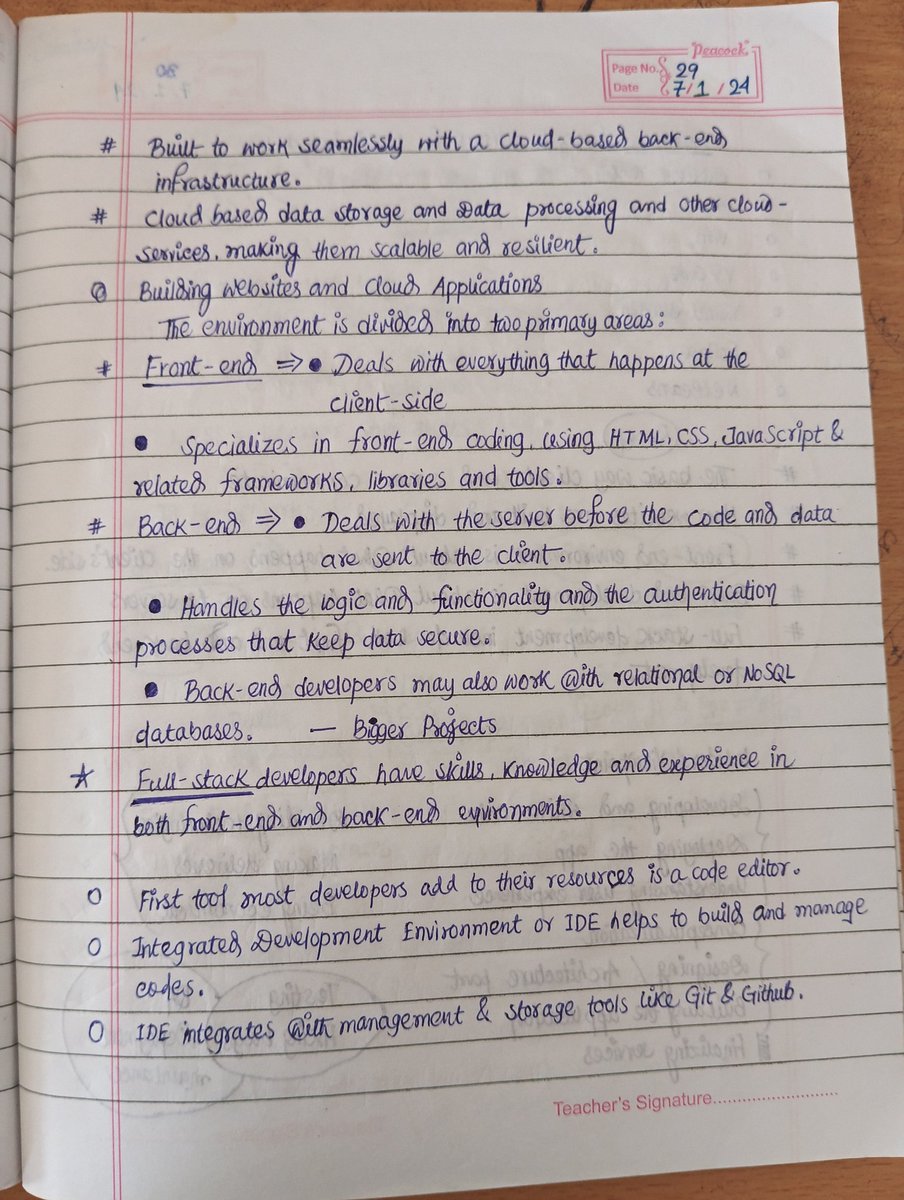 Peacock
Page No. 29
Date 7/1/24
# Built to work seamlessly with a cloud-based back-end
infrastructure.
# Cloud based data storage and Data processing and other cloud-
services, making them scalable and resilient.
Building websites and Cloud Applications
The environment is divided into two primary areas:
* Front-end ⇒ • Deals with everything that happens at the
client-side
• Specializes in front-end coding, using HTML, CSS, JavaScript &
related frameworks, libraries and tools.
# Back-end ⇒ • Deals with the server before the code and data
are sent to the client.
• Handles the logic and functionality and the authentication
processes that keep data secure.
• Back-end developers may also work with relational or NoSQL
databases. — Bigger Projects
☆ Full-stack developers have skills, knowledge and experience in
both front-end and back-end equironments.
O First tool most developers add to their resources is a code editor.
O Integrated Development Environment or IDE helps to build and manage
codes.
O IDE integrates with management & storage tools like Git & Github.
Teacher's Signature..........................